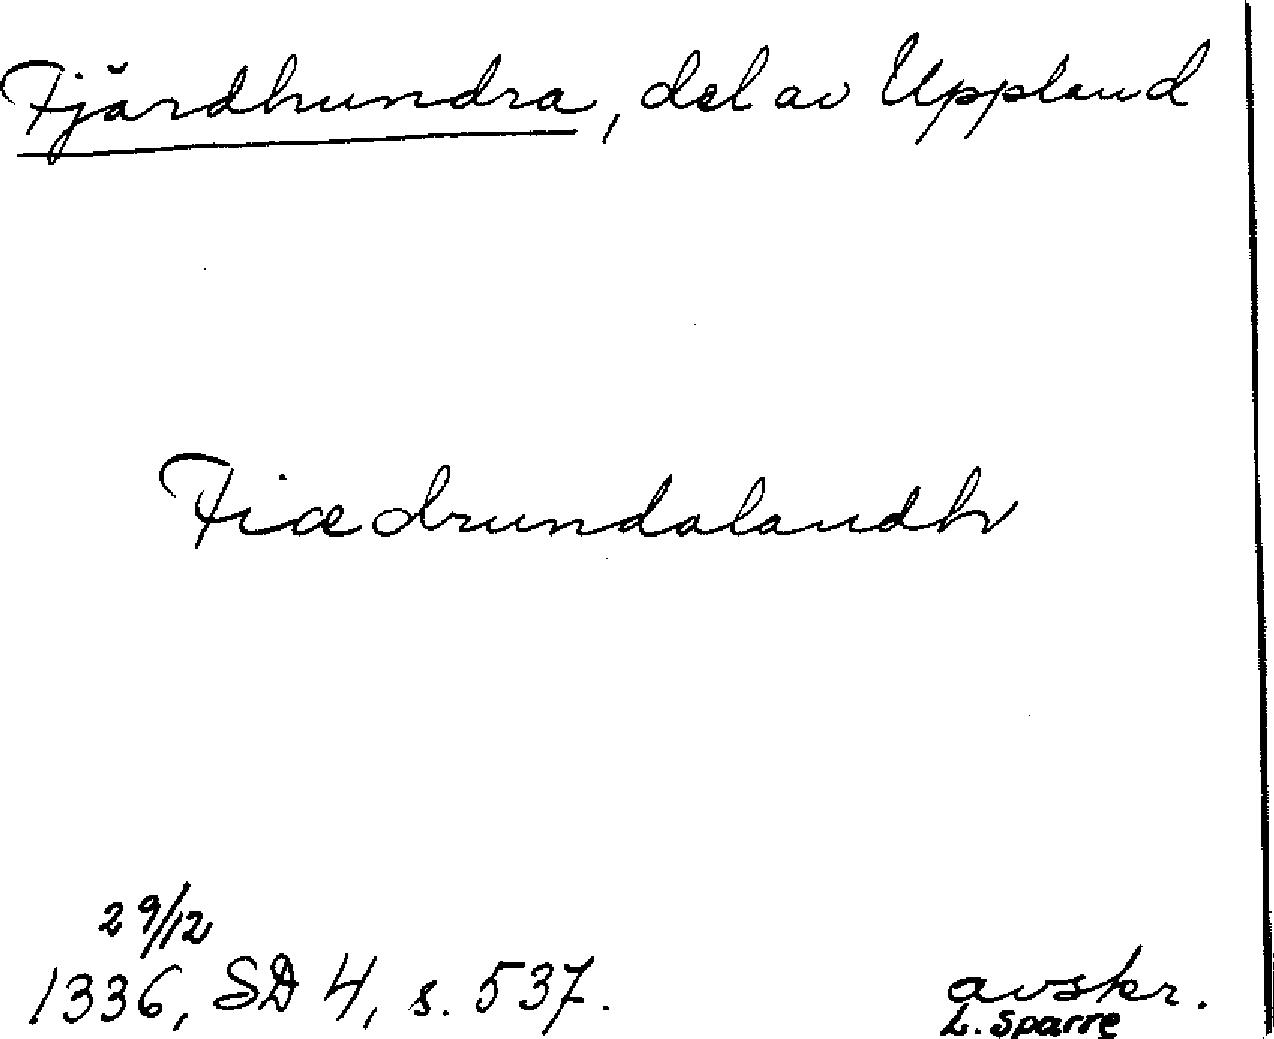 Fjärdhundra, del av Uppland
Fiædrundalandh
29/12
1336, SD 4, s. 537.
avskr.
L. Sparre